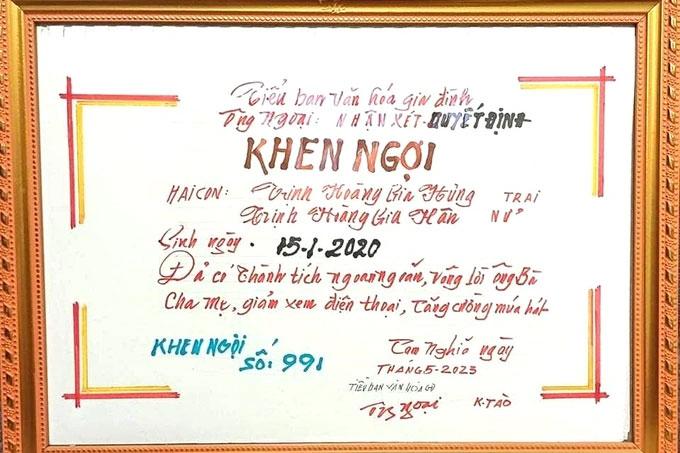 Tiểu ban Văn hóa gia đình
Ông Ngoại: NHẬN XÉT - QUYẾT ĐỊNH
KHEN NGỢI
HAI CON: Trịnh Hoàng Gia Hưng TRAI
Trịnh Hoàng Gia Hân NỮ
Sinh ngày. 15-1-2020
Đả có Thành tích ngoan ngoãn, vâng lời ông Bà
Cha mẹ, giảm xem điện thoại, Tăng cường múa hát
KHEN NGỢI
SỐ: 991
Tam Nghĩa ngày
THÁNG 5-2023
TIỂU BAN VĂN HÓA GĐ
Ông Ngoại K-TÀO